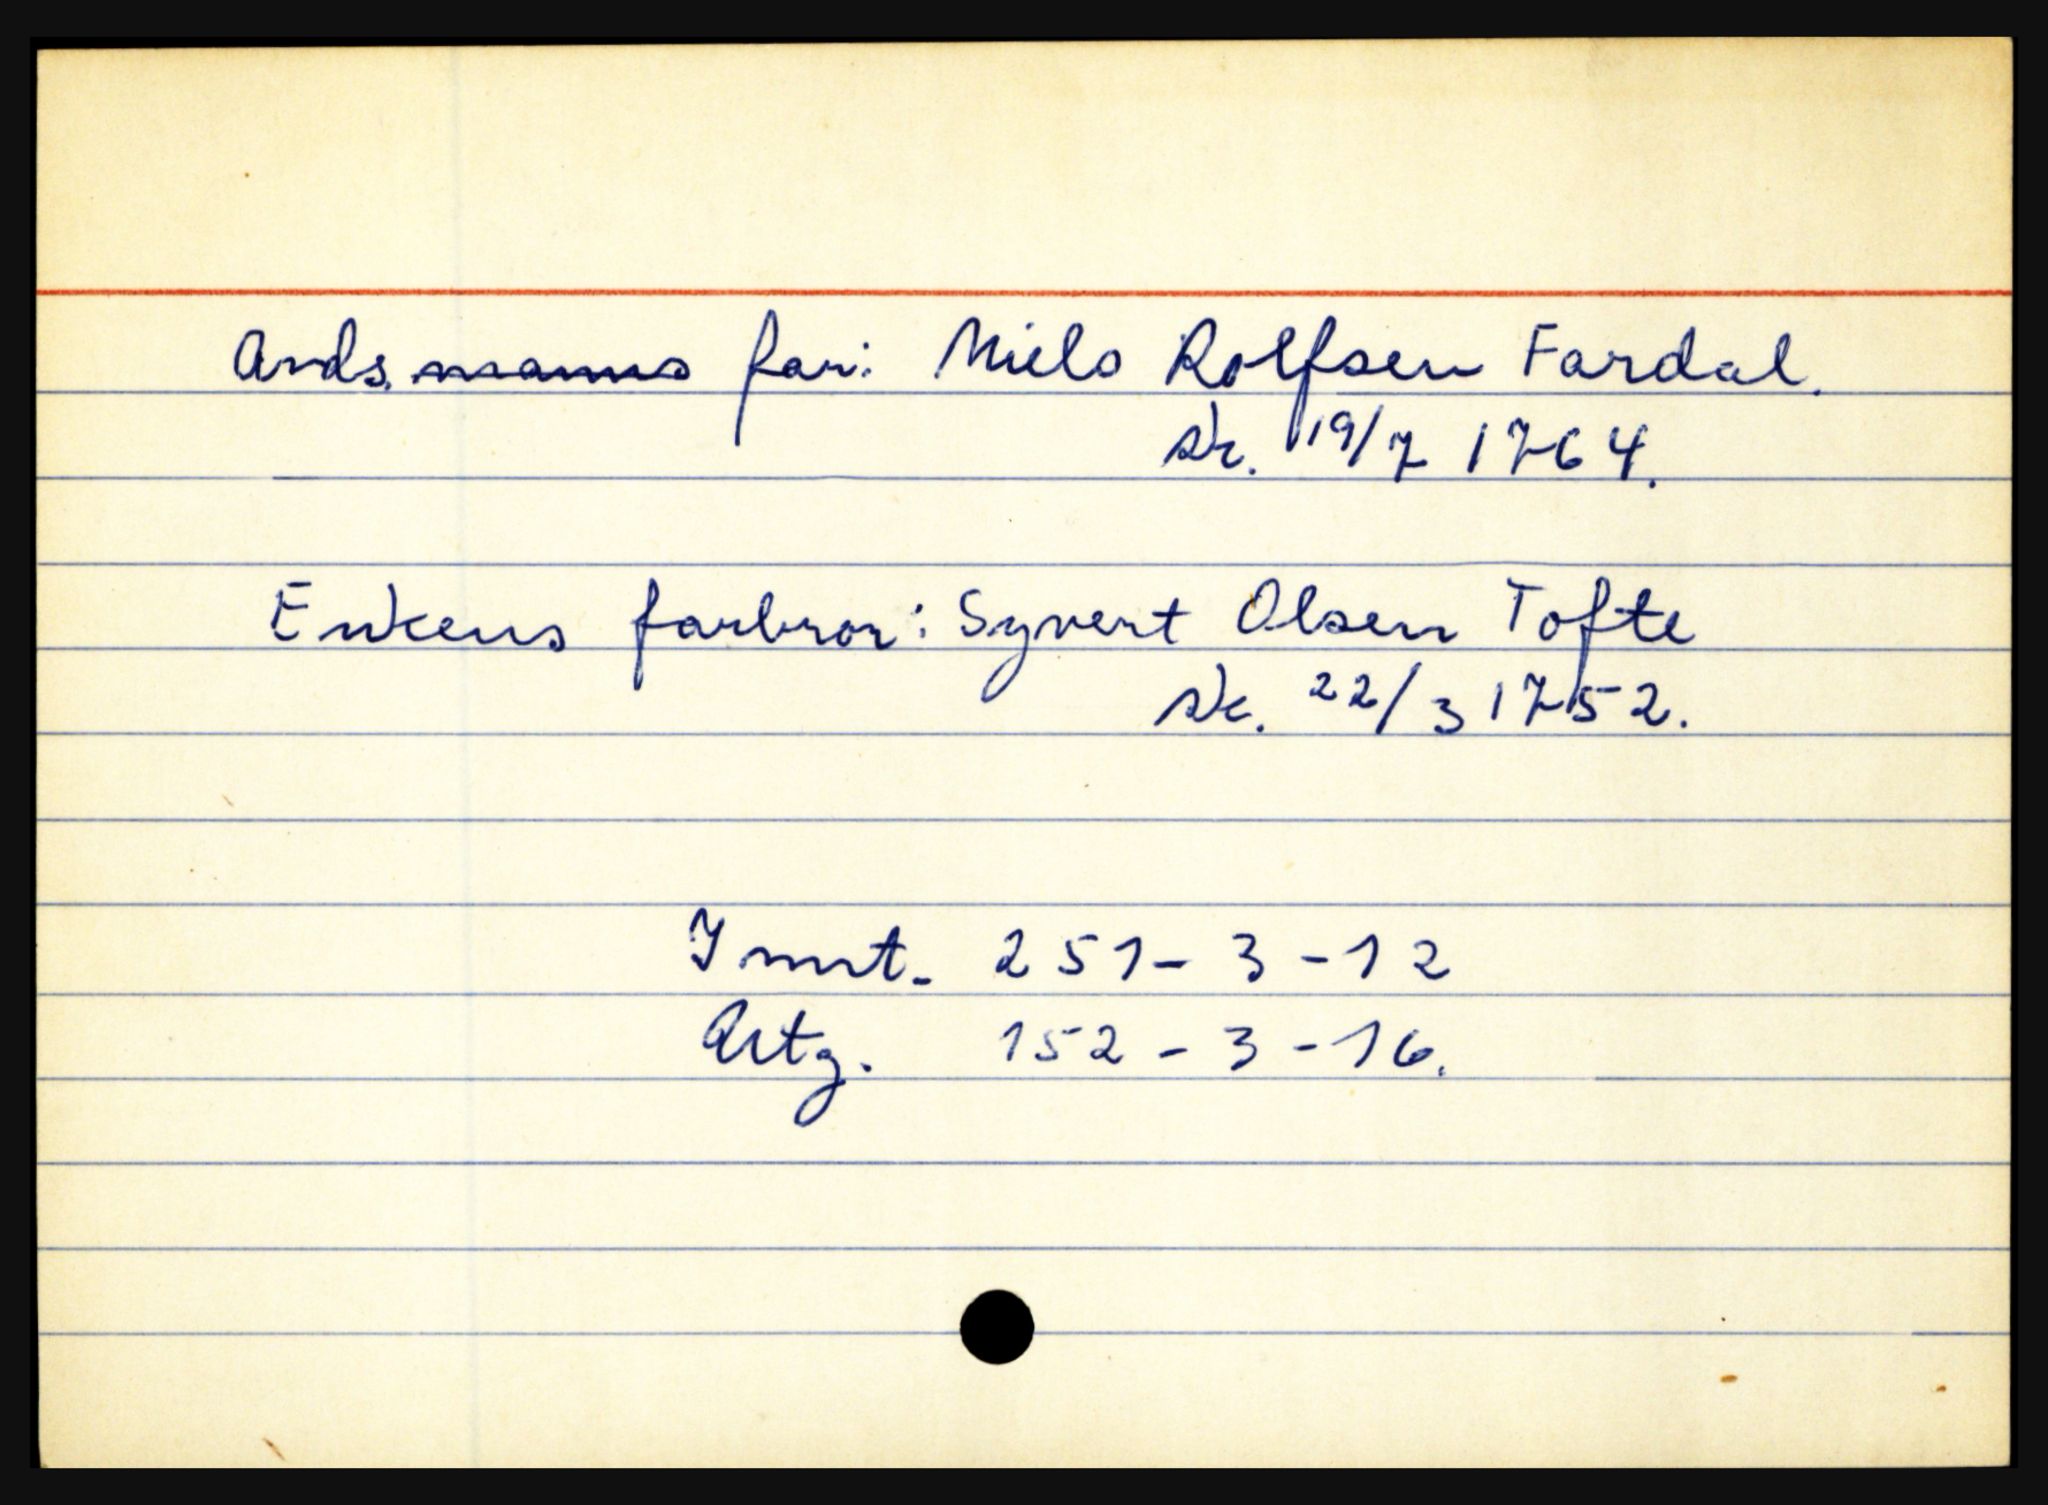 Avds. manns far: Niels Rolfsen Fardal.
sk. 19/7 1764.
Enkens farbror: Syvert Olsen Tofte
sk. 22/3 1752.
Innt. 251-3-12
Utg. 152-3-16.